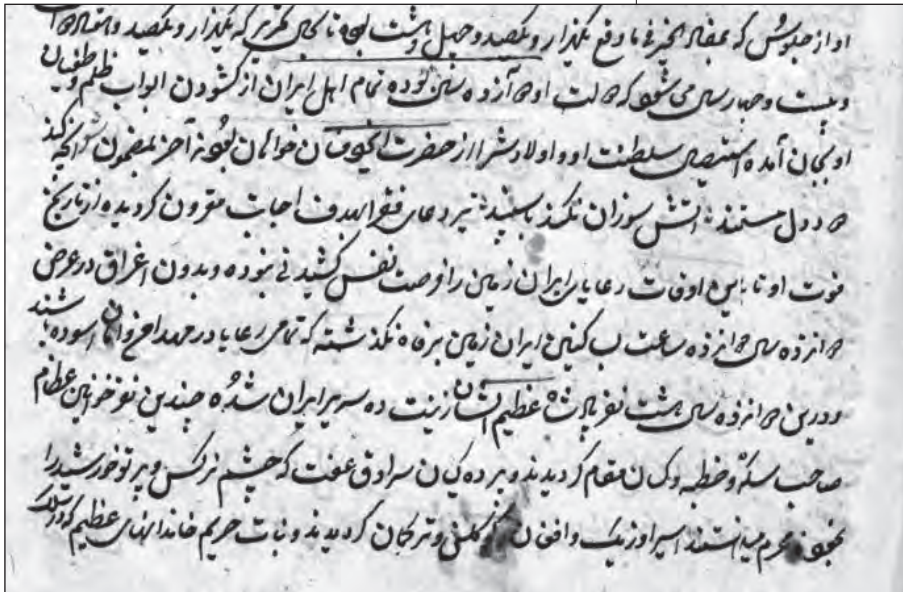 او از جلوسش که بمفاد الخیر فی ما وقع یکهزار و یکصد و چهل و هشت بوده تا بحال تحریر که یکهزار و یکصد و
و بیست و چهار سال می شود که دولت او در آن بوده تمام اهل ایران از کشودن ابواب ظلم و طغیان
او بجان آمده استیصال سلطنت او و اولادش را از حضرت خواهان بودند آخر بمضمون آنچه کند
دود دل مستمند آتش سوزان نکند با سپند تیر دعای فقرا بهدف اجابت مقرون کردیده از تاریخ
فوت او تا این اوقات رعایای ایران زمین را فرصت نفس کشیدنی نبوده و بدون اغراق در عرض
دوانزده سال دوانزده ساعت بساکنین ایران زمین برفاه نکذشته که تمامی رعایا در مهد امن و امان آسوده باشند
و درین دوانزده سال هشت نفر پادشاه عظیم الشان زینت ده سریر ایران شده چندین نفر خوانین عظام
صاحب سکه و خطبه و کان مقام کردیدند و پرده کیان سرادق عفت که چشم نرکس و پرتو خورشید را
بخود محرم میدانستند اسیر اوزبک و افغان و ترکمان کردیدند و بنات حریم خاندانهای عظیم که